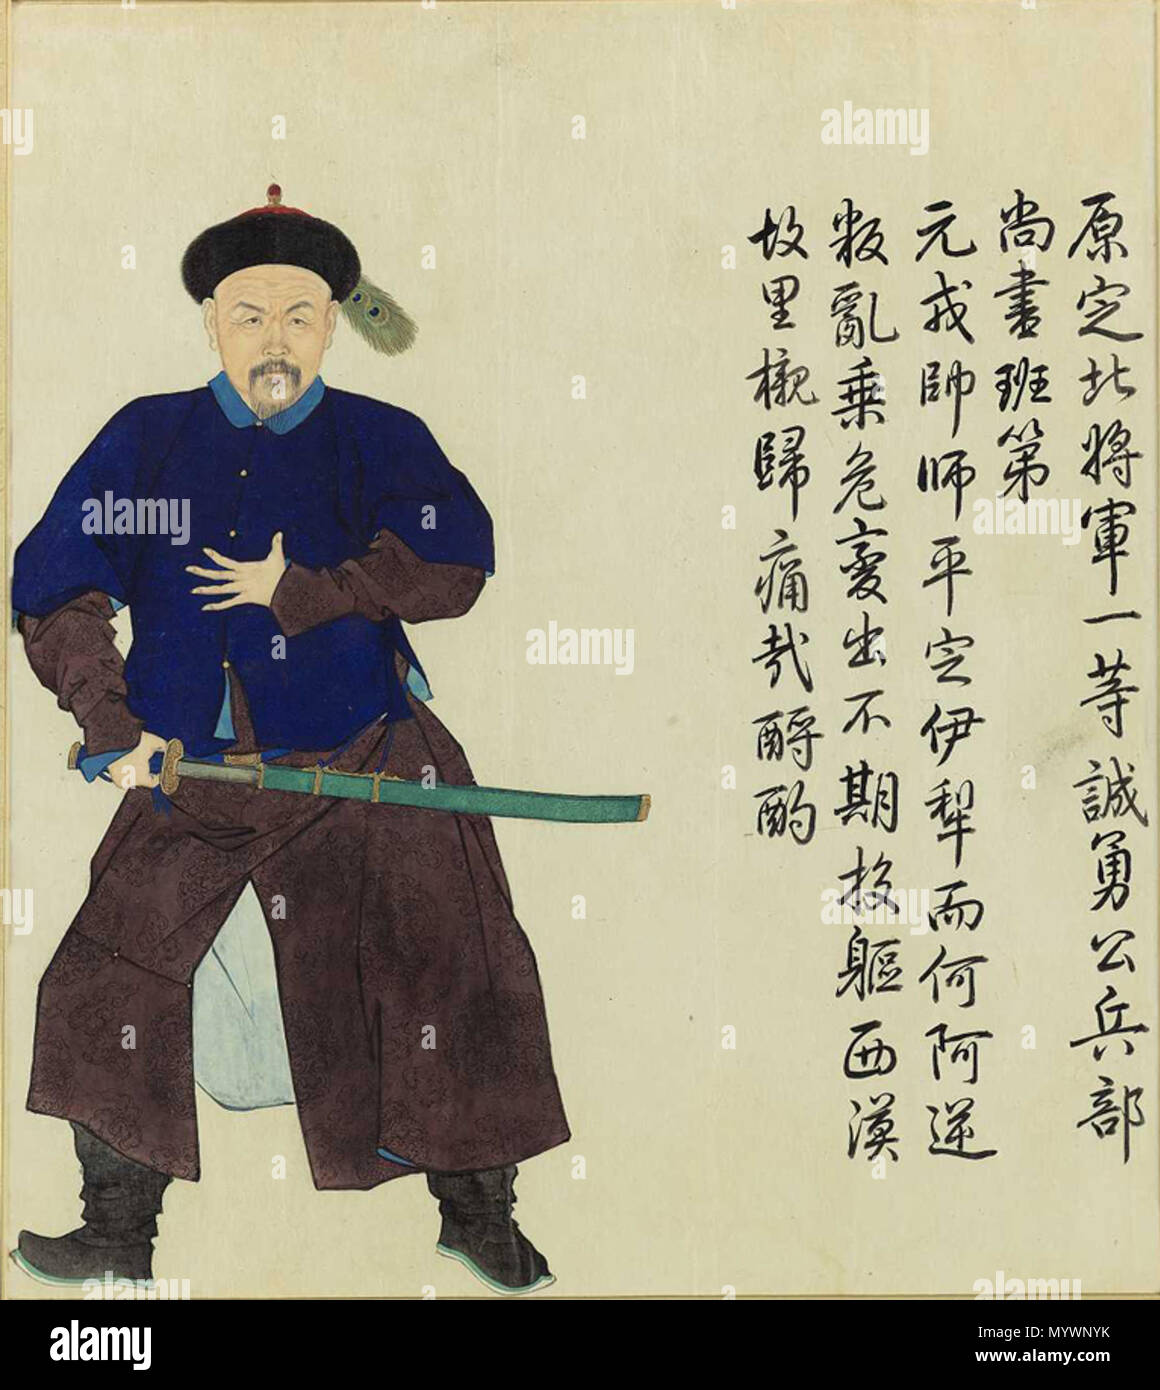 原定北將軍一等誠勇公兵部
尚書班第
元戎帥師平定伊犁而何阿逆
叛亂乗危變出不期投軀西漠
故里櫬歸痛哉酹酌
alamy
alamy
Image ID: MYWNYK
www.alamy.com